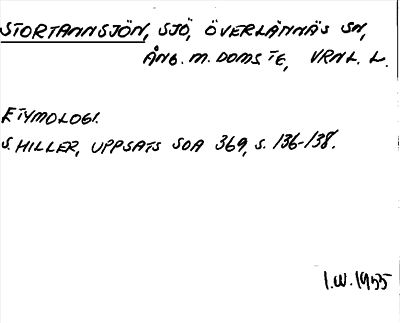 STORTANNSJÖN, SJÖ, ÖVERLÄNNÄS SN,
ÅNG. M. DOMS TE, VRNL. L.
ETYMOLOGI.
S. HILLER, UPPSATS SOA 369, S. 136-138.
I.W. 1955